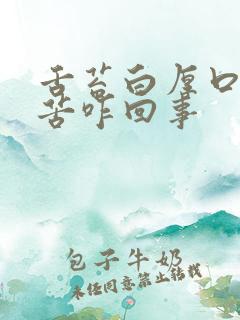 舌苔白厚口
苦咋回事
包子牛奶
未经同意禁止转载